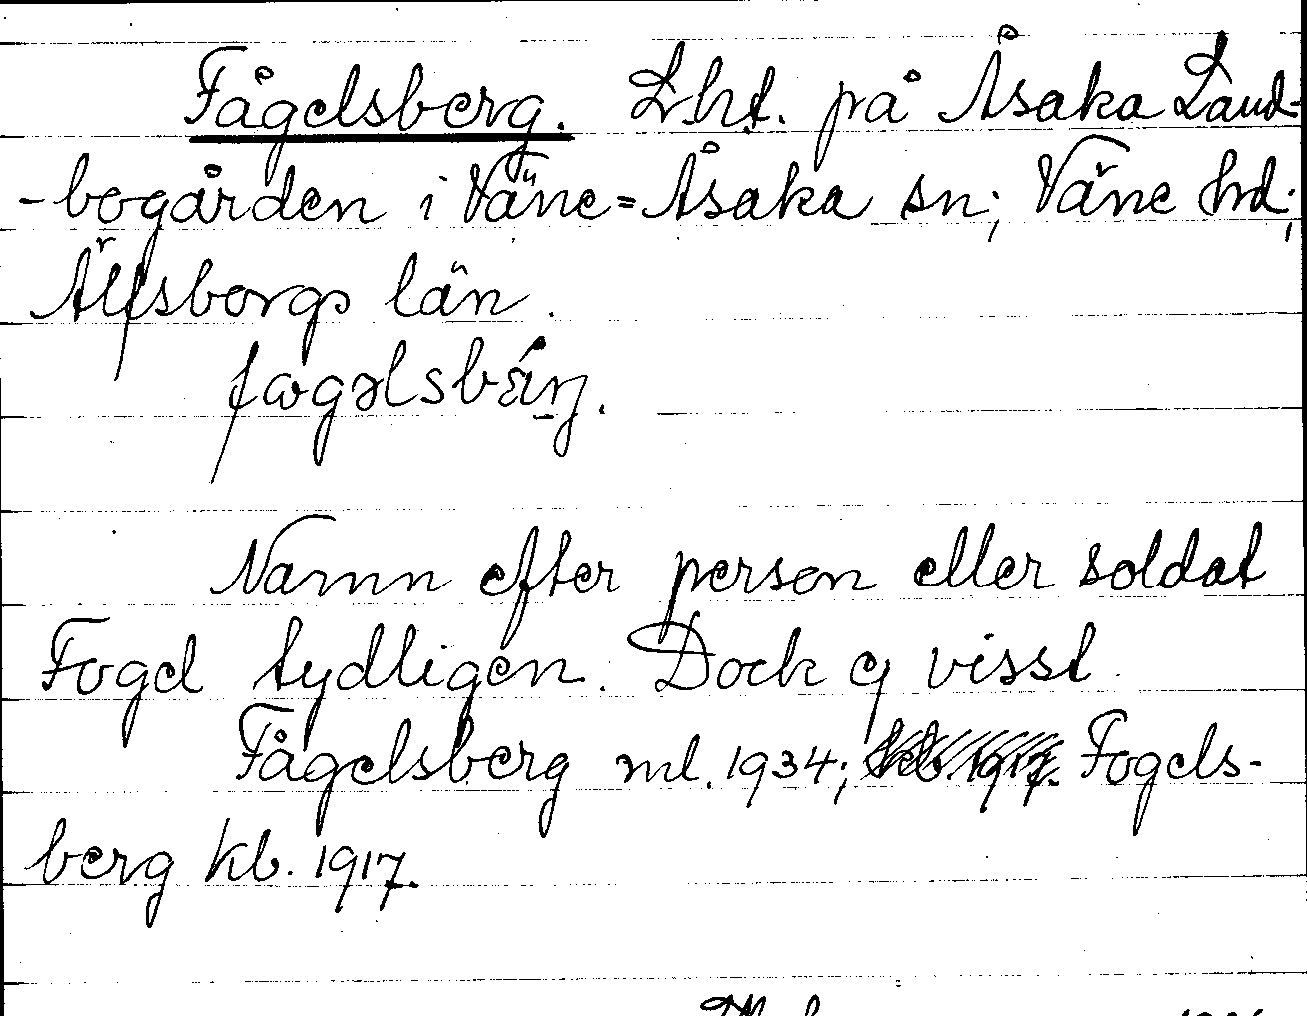 Fågelsberg. Lht. på Åsaka Land-
-bogården i Väne=Åsaka sn; Väne hd;
Älfsborgs län.
Namn efter person eller soldat
Fogel tydligen. Dock ej visst.
Fågelsberg ml. 1934; Fogels-
berg kb. 1917.